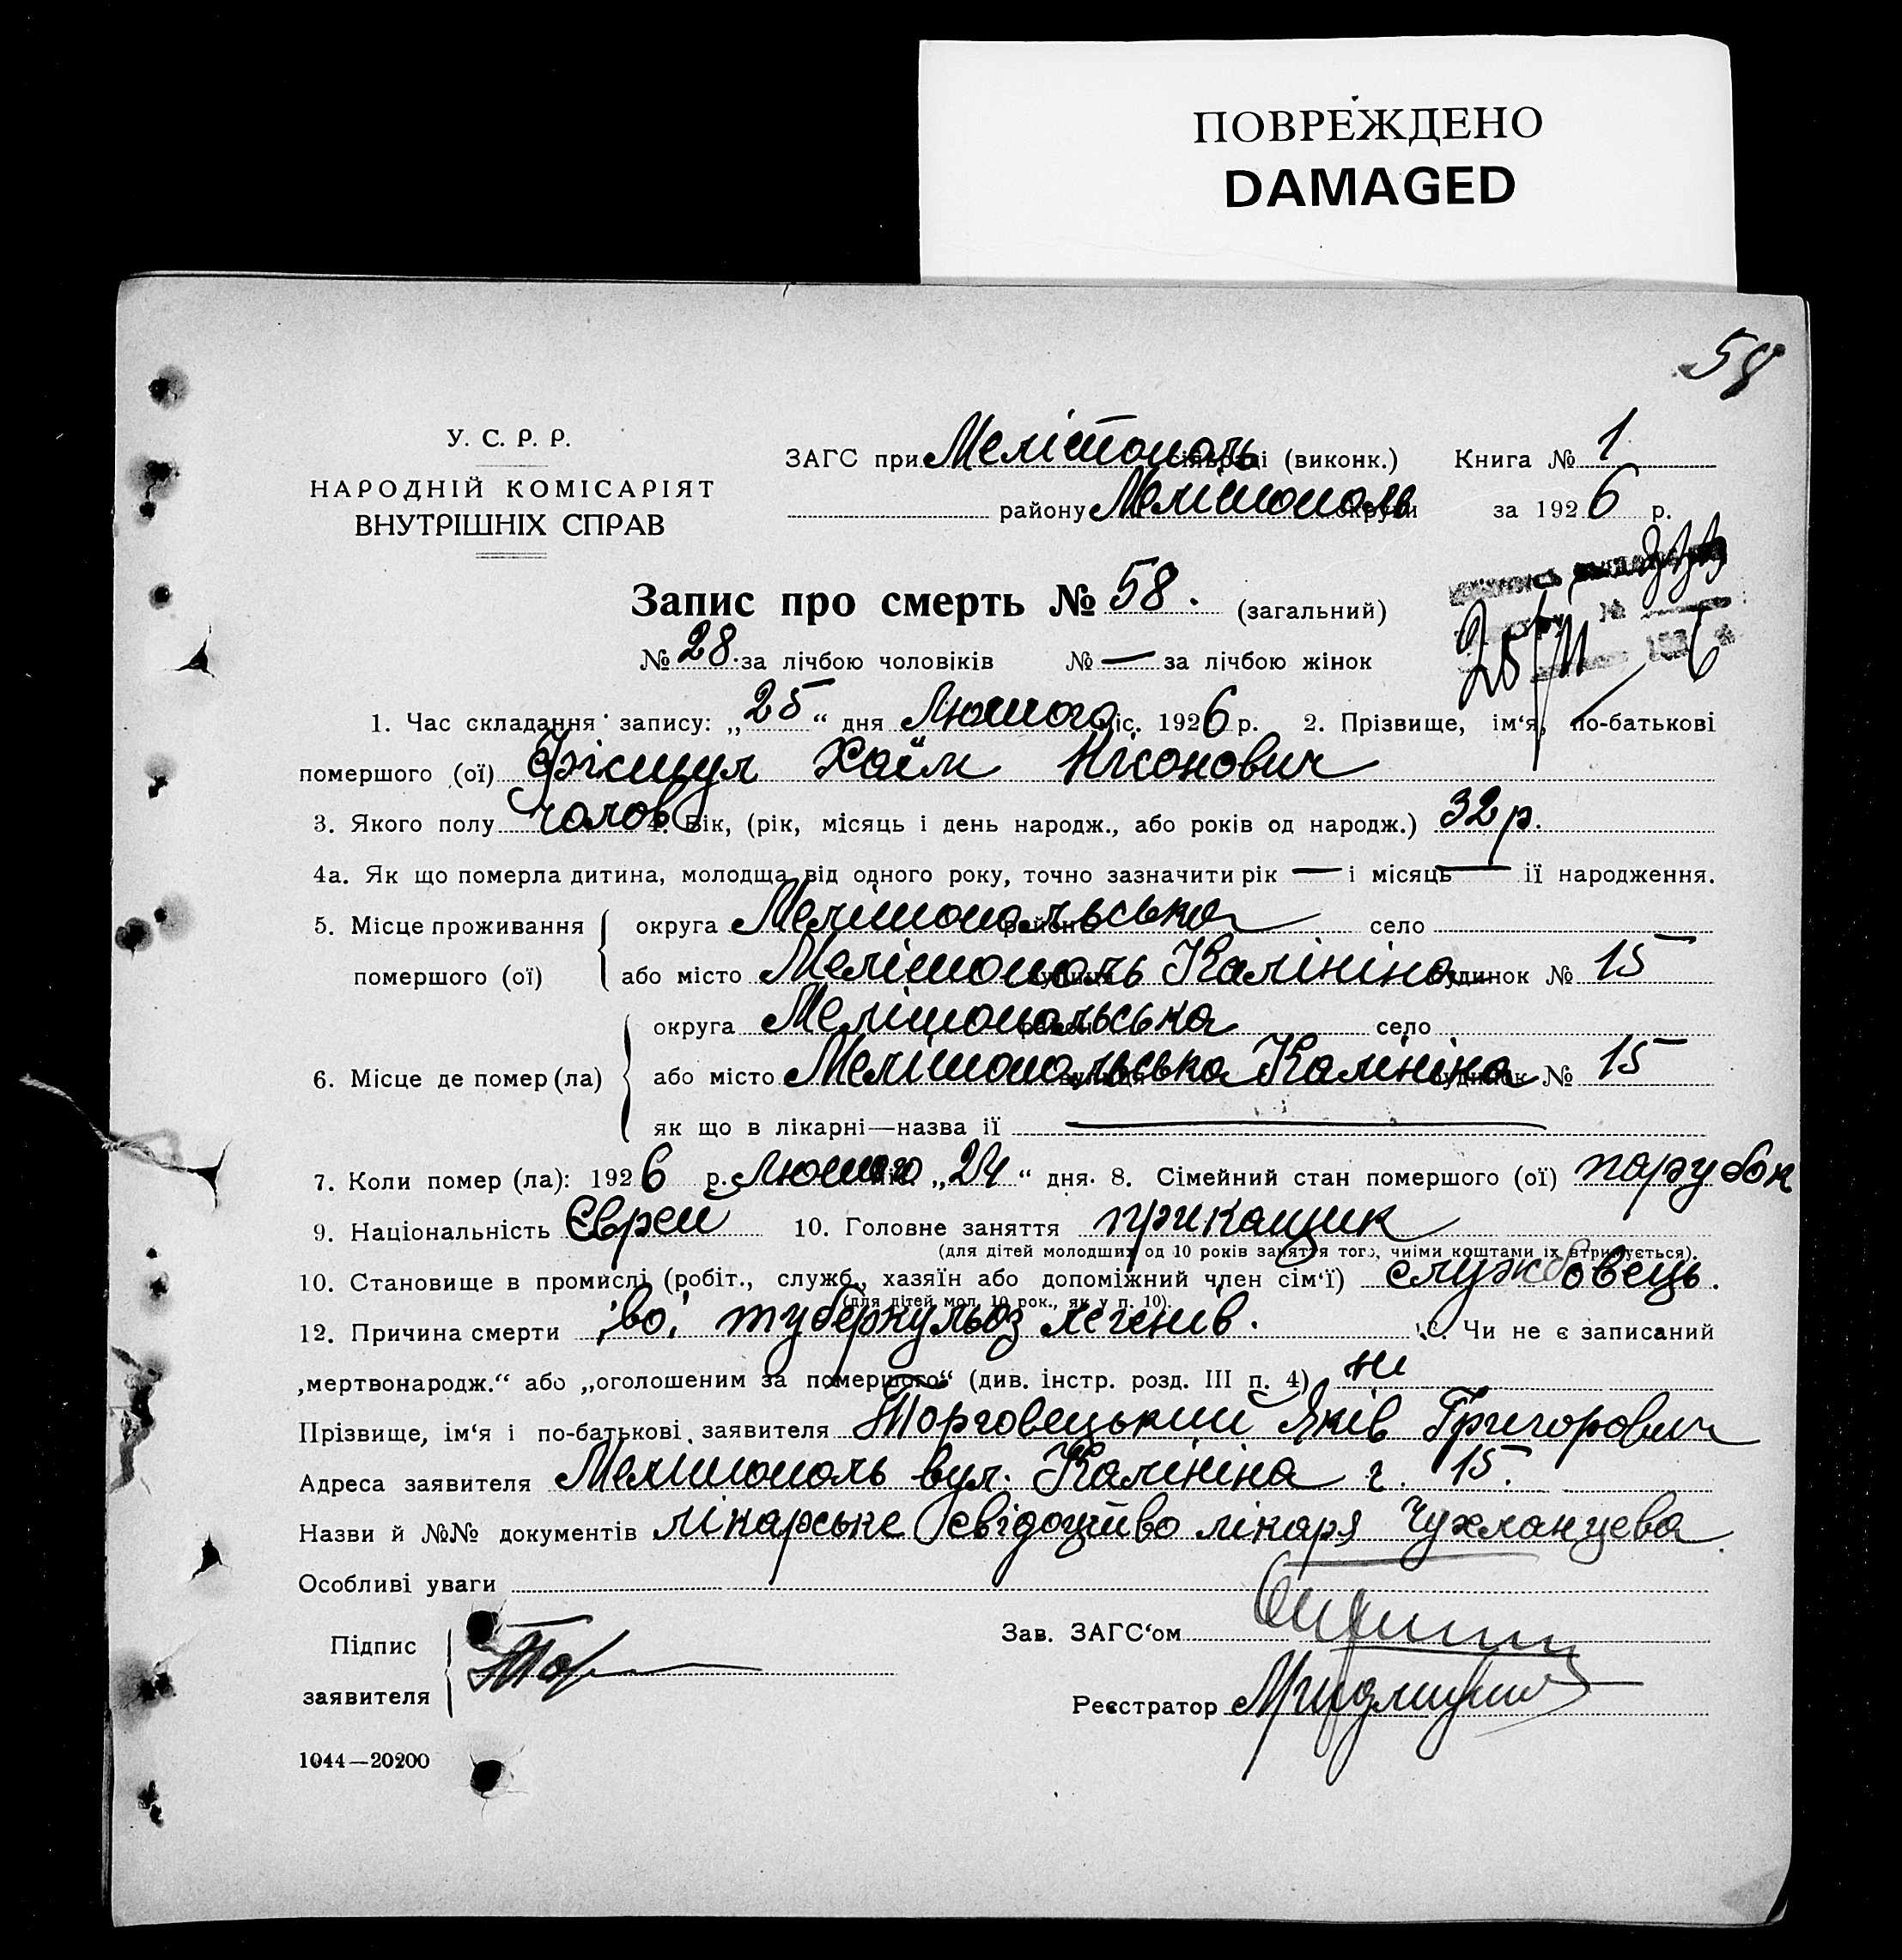 ПОВРЕЖДЕНО
DAMAGED
58
У. С. Р. Р.
НАРОДНІЙ КОМІСАРІЯТ
ВНУТРІШНІХ СПРАВ
ЗАГС при Мелітополь сільраді (виконк.) Книга № 1
району Мелітополь округи за 1926 р.
Запис про смерть № 58. (загальний)
№ 28. за лічбою чоловіків № — за лічбою жінок
25/II 6
1. Час складання запису: „25“ дня Лютого міс. 1926 р. 2. Прізвище, ім‘я, по-батькові
помершого (ої) Фікшул Хаїм Нісонович
3. Якого полу чолов 4. Вік, (рік, місяць і день народж., або років од народж.) 32 р.
4а. Як що померла дитина, молодща від одного року, точно зазначити рік — і місяць — ії народження.
5. Місце проживання округа Мелітопольська район село
помершого (ої) або місто Мелітополь вулиця Калініна будинок № 15
округа Мелітопольська район село
6. Місце де помер (ла) або місто Мелітопольська вулиця Калініна будинок № 15
як що в лікарні—назва ії —
7. Коли помер (ла): 1926 р. Лютого міс. „24“ дня. 8. Сімейний стан помершого (ої) парубок
9. Національність Єврей 10. Головне заняття прикащик
(для дітей молодших од 10 років заняття того, чиіми коштами іх втримується).
10. Становище в промислі (робіт., служб., хазяїн або допоміжний член сім‘ї) службовець.
(для дітей мол. 10 рок., як у п. 10).
12. Причина смерти туберкульоз легенів. Чи не є записаний
„мертвонародж.“ або „оголошеним за помершого“ (див. інстр. розд. III п. 4) ні
Прізвище, ім‘я і по-батькові заявителя Торговецький Яків Григорович
Адреса заявителя Мелітополь вул. Калініна ч. 15.
Назви й №№ документів лікарське свідоцтво лікаря Чухланцева
Особливі уваги
Підпис
заявителя Тор
Зав. ЗАГС‘ом
Реєстратор
1044—20200